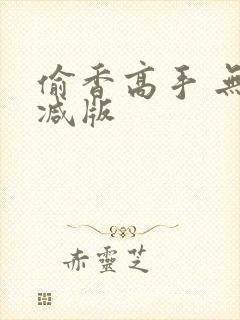 偷香高手 無
减版
赤靈芝